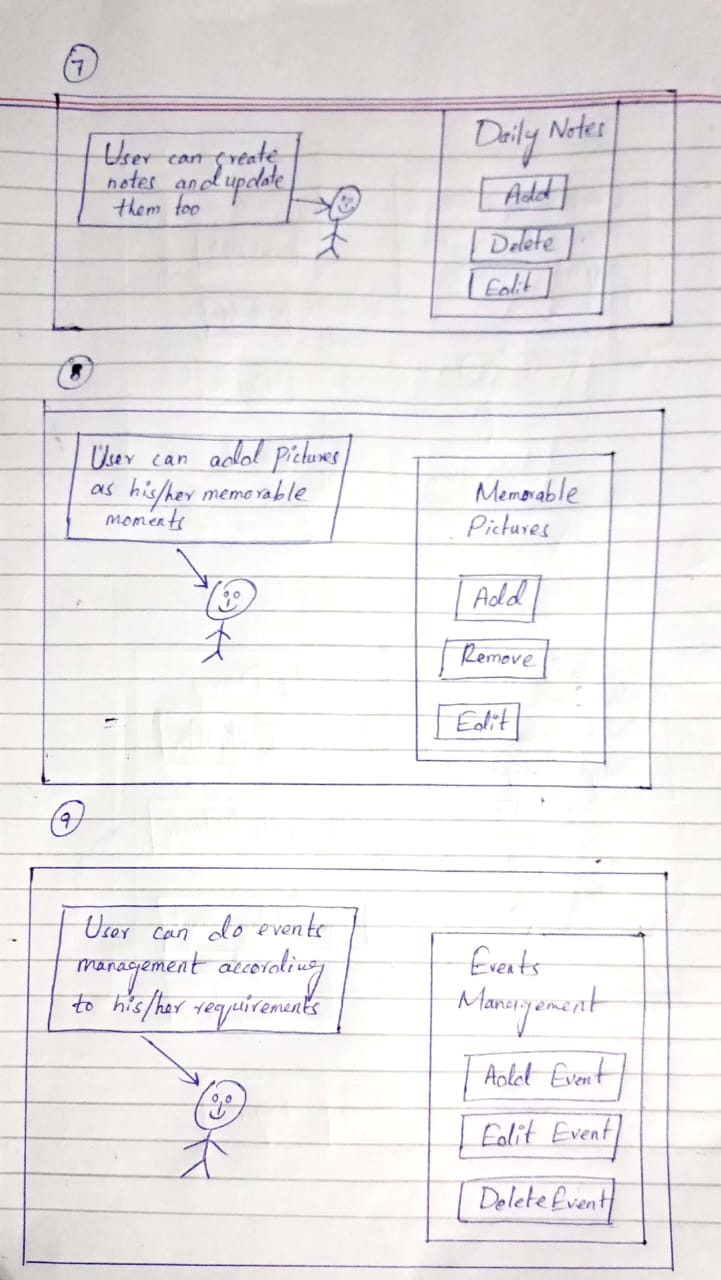 7
User can create
notes and update
them too
Daily Notes
Add
Delete
Edit
8
User can add Pictures
as his/her memorable
moments
Memorable
Pictures
Add
Remove
Edit
9
User can do events
management according
to his/her requirements
Events
Management
Add Event
Edit Event
Delete Event